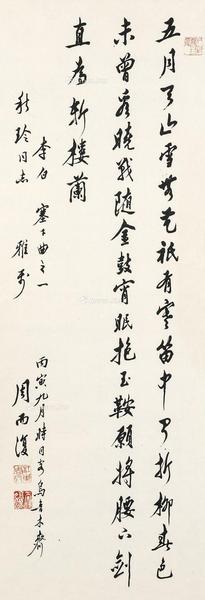 五月天山雪無花祇有寒笛中聞折柳春色
未曾看曉戰隨金鼓宵眠抱玉鞍願將腰下劍
直為斬樓蘭
李白 塞下曲之一
秋玲同志 雅
丙寅九月時烏魯木齊
周而復